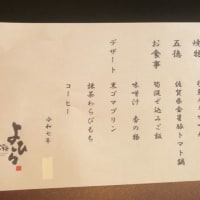 焼物
五徳
佐賀県金星豚トマト鍋
お食事
筍混ぜ込みご飯
味噌汁 香の物
デザート
黒ゴマプリン
抹茶わらびもち
コーヒー
令和七年
よひら